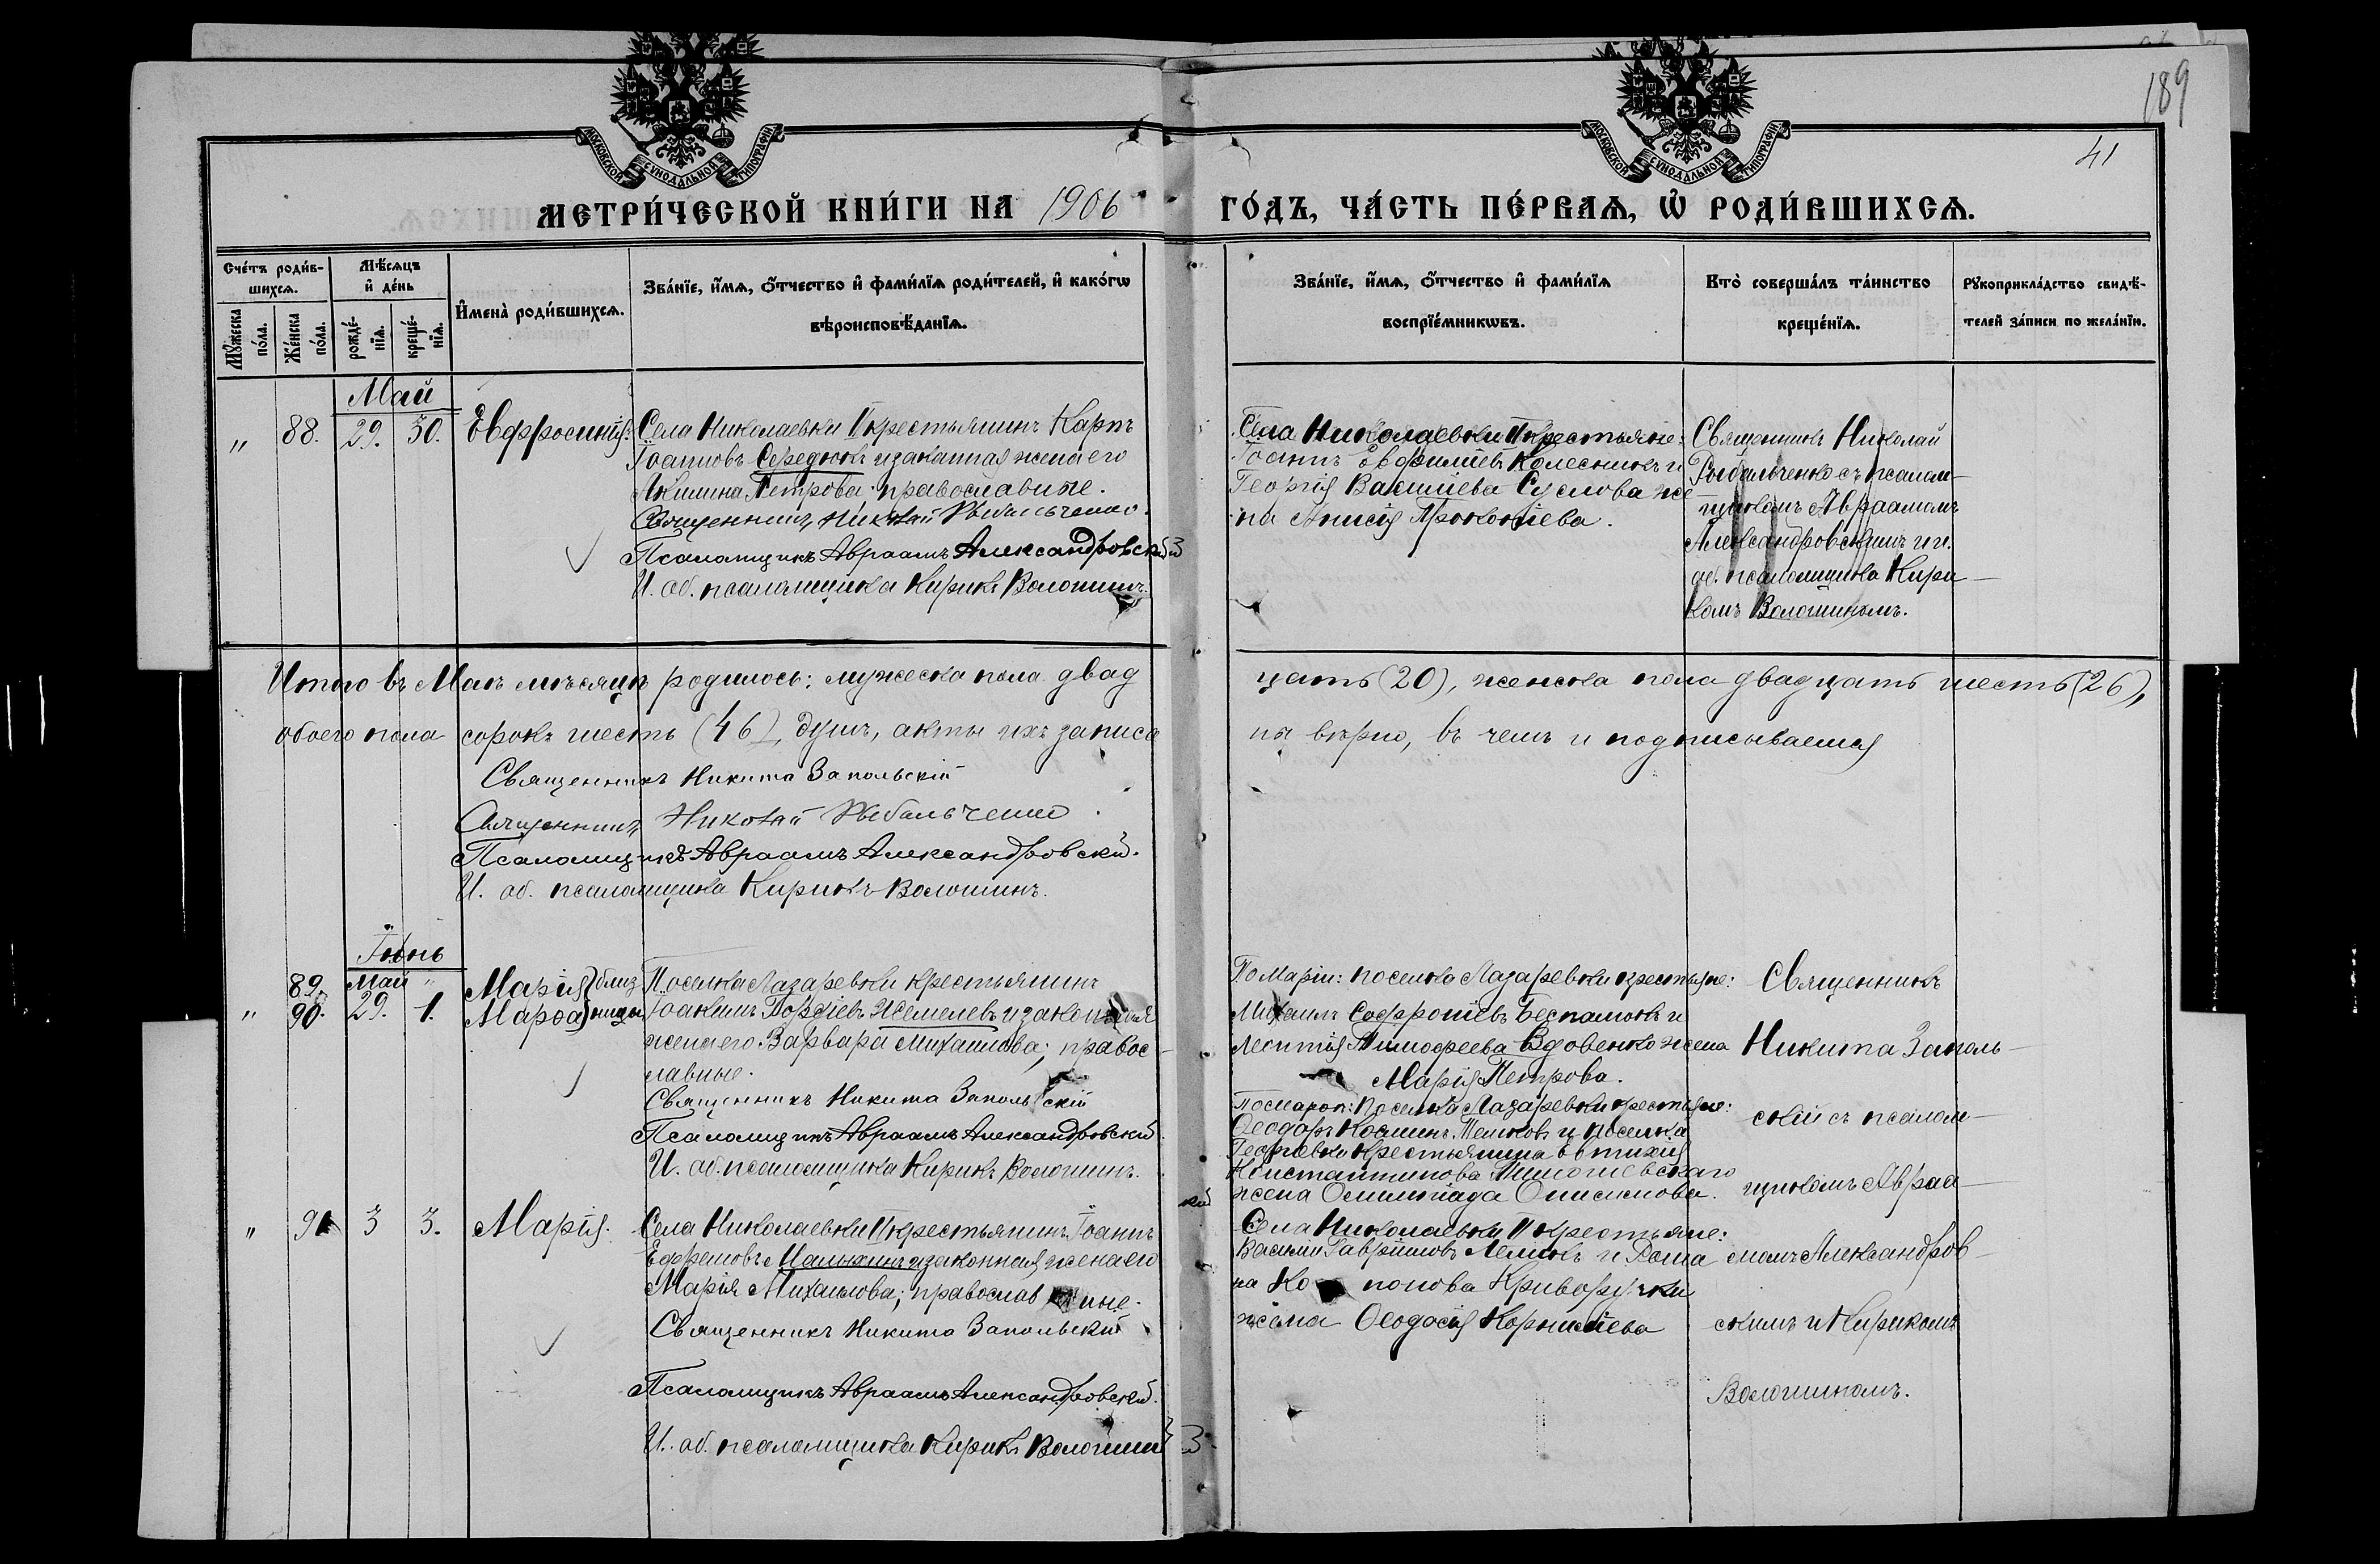 189
41
МОСКОВСКОЙ СѴНОДАЛЬНОЙ ТИПОГРАФІИ
МОСКОВСКОЙ СѴНОДАЛЬНОЙ ТИПОГРАФІИ
МЕТРИ́ЧЕСКОЙ КНИ́ГИ НА 1906 ГО́ДЪ, ЧА́СТЬ ПЕ́РВАѦ, Ѡ҆ РОДИ́ВШИХСѦ.
Сче́тъ роди́в-
шихсѧ.
Мꙋ́жеска по́ла.
Же́нска по́ла.
Мѣ́сѧцъ
и҆ де́нь
рожде́-
нїѧ.
креще́-
нїѧ.
И҆мена̀ роди́вшихсѧ.
Зва́нїе, и҆́мѧ, ѻ҆́тчество и҆ фами́лїѧ роди́телей, и҆ како́гѡ
вѣроисповѣ́данїѧ.
Зва́нїе, и҆́мѧ, ѻ҆́тчество и҆ фами́лїѧ
воспрїе́мникѡвъ.
Кто̀ соверша́лъ та́инство
креще́нїѧ.
Рꙋкоприкла́дство свидѣ́-
телей за́писи по жела́нїю.
Май
" 88. 29. 30. Евфросинія.
Села Николаевки II крестьянинъ Карпъ
Іоанновъ Середюкъ и законная жена его
Акилина Петрова; православные.
Священникъ Николай Рыбальченко.
Псаломщикъ Авраамъ Александровскій
И. об. псаломщика Кирикъ Волошинъ.
Села Николаевки II крестьяне:
Іоаннъ Евфиміевъ Колесникъ и
Георгія Васильева Суслова же-
на Анисія Прокопіева.
Священникъ Николай
Рыбальченко съ псалом-
щикомъ Авраамомъ
Александровскимъ и и.
об. псаломщика Кири-
комъ Волошиномъ.
Итого въ Маѣ мѣсяцѣ родилось: мужеска пола двадцать (20), женска пола двадцать шесть (26),
обоего пола сорокъ шесть (46) душъ, акты ихъ записаны вѣрно, въ чемъ и подписываемся
Священникъ Никита Запольскій
Священникъ Николай Рыбальченко.
Псаломщикъ Авраамъ Александровскій.
И. об. псаломщика Кирикъ Волошинъ.
Іюнь
89. Май " Марія близ
" 90. 29. 1. Марѳа ницы
Поселка Лазаревки крестьянинъ
Іоакимъ Гордіевъ Жемелевъ и законная
жена его Варвара Михаилова; правос-
лавные.
Священникъ Никита Запольскій
Псаломщикъ Авраамъ Александровскій.
И. об. псаломщика Кирикъ Волошинъ.
По Маріи: поселка Лазаревки крестьяне:
Михаилъ Софроніевъ Беспалокъ и
Леонтія Тимофеева Вдовенко жена
Марія Петрова.
По Марѳѣ: поселка Лазаревки крестьяне:
Ѳеодоръ Косминъ и поселка
Георгіевки крестьянина Евтихія
Константинова
жена Олимпіада Онисимова.
Священникъ
Никита Заполь-
скій съ псалом-
щикомъ Авраа-
момъ Александров-
скимъ и Кирикомъ
Волошиномъ.
" 91 3 3. Марія.
Села Николаевки II крестьянинъ Іоаннъ
Ефремовъ и законная жена его
Марія Михаилова; православные.
Священникъ Никита Запольскій
Псаломщикъ Авраамъ Александровскій.
И. об. псаломщика Кирикъ Волошинъ
Села Николаевки II крестьяне:
Василій Гавриловъ и Рома
на Криворучки
жена Ѳеодосія Корниліева